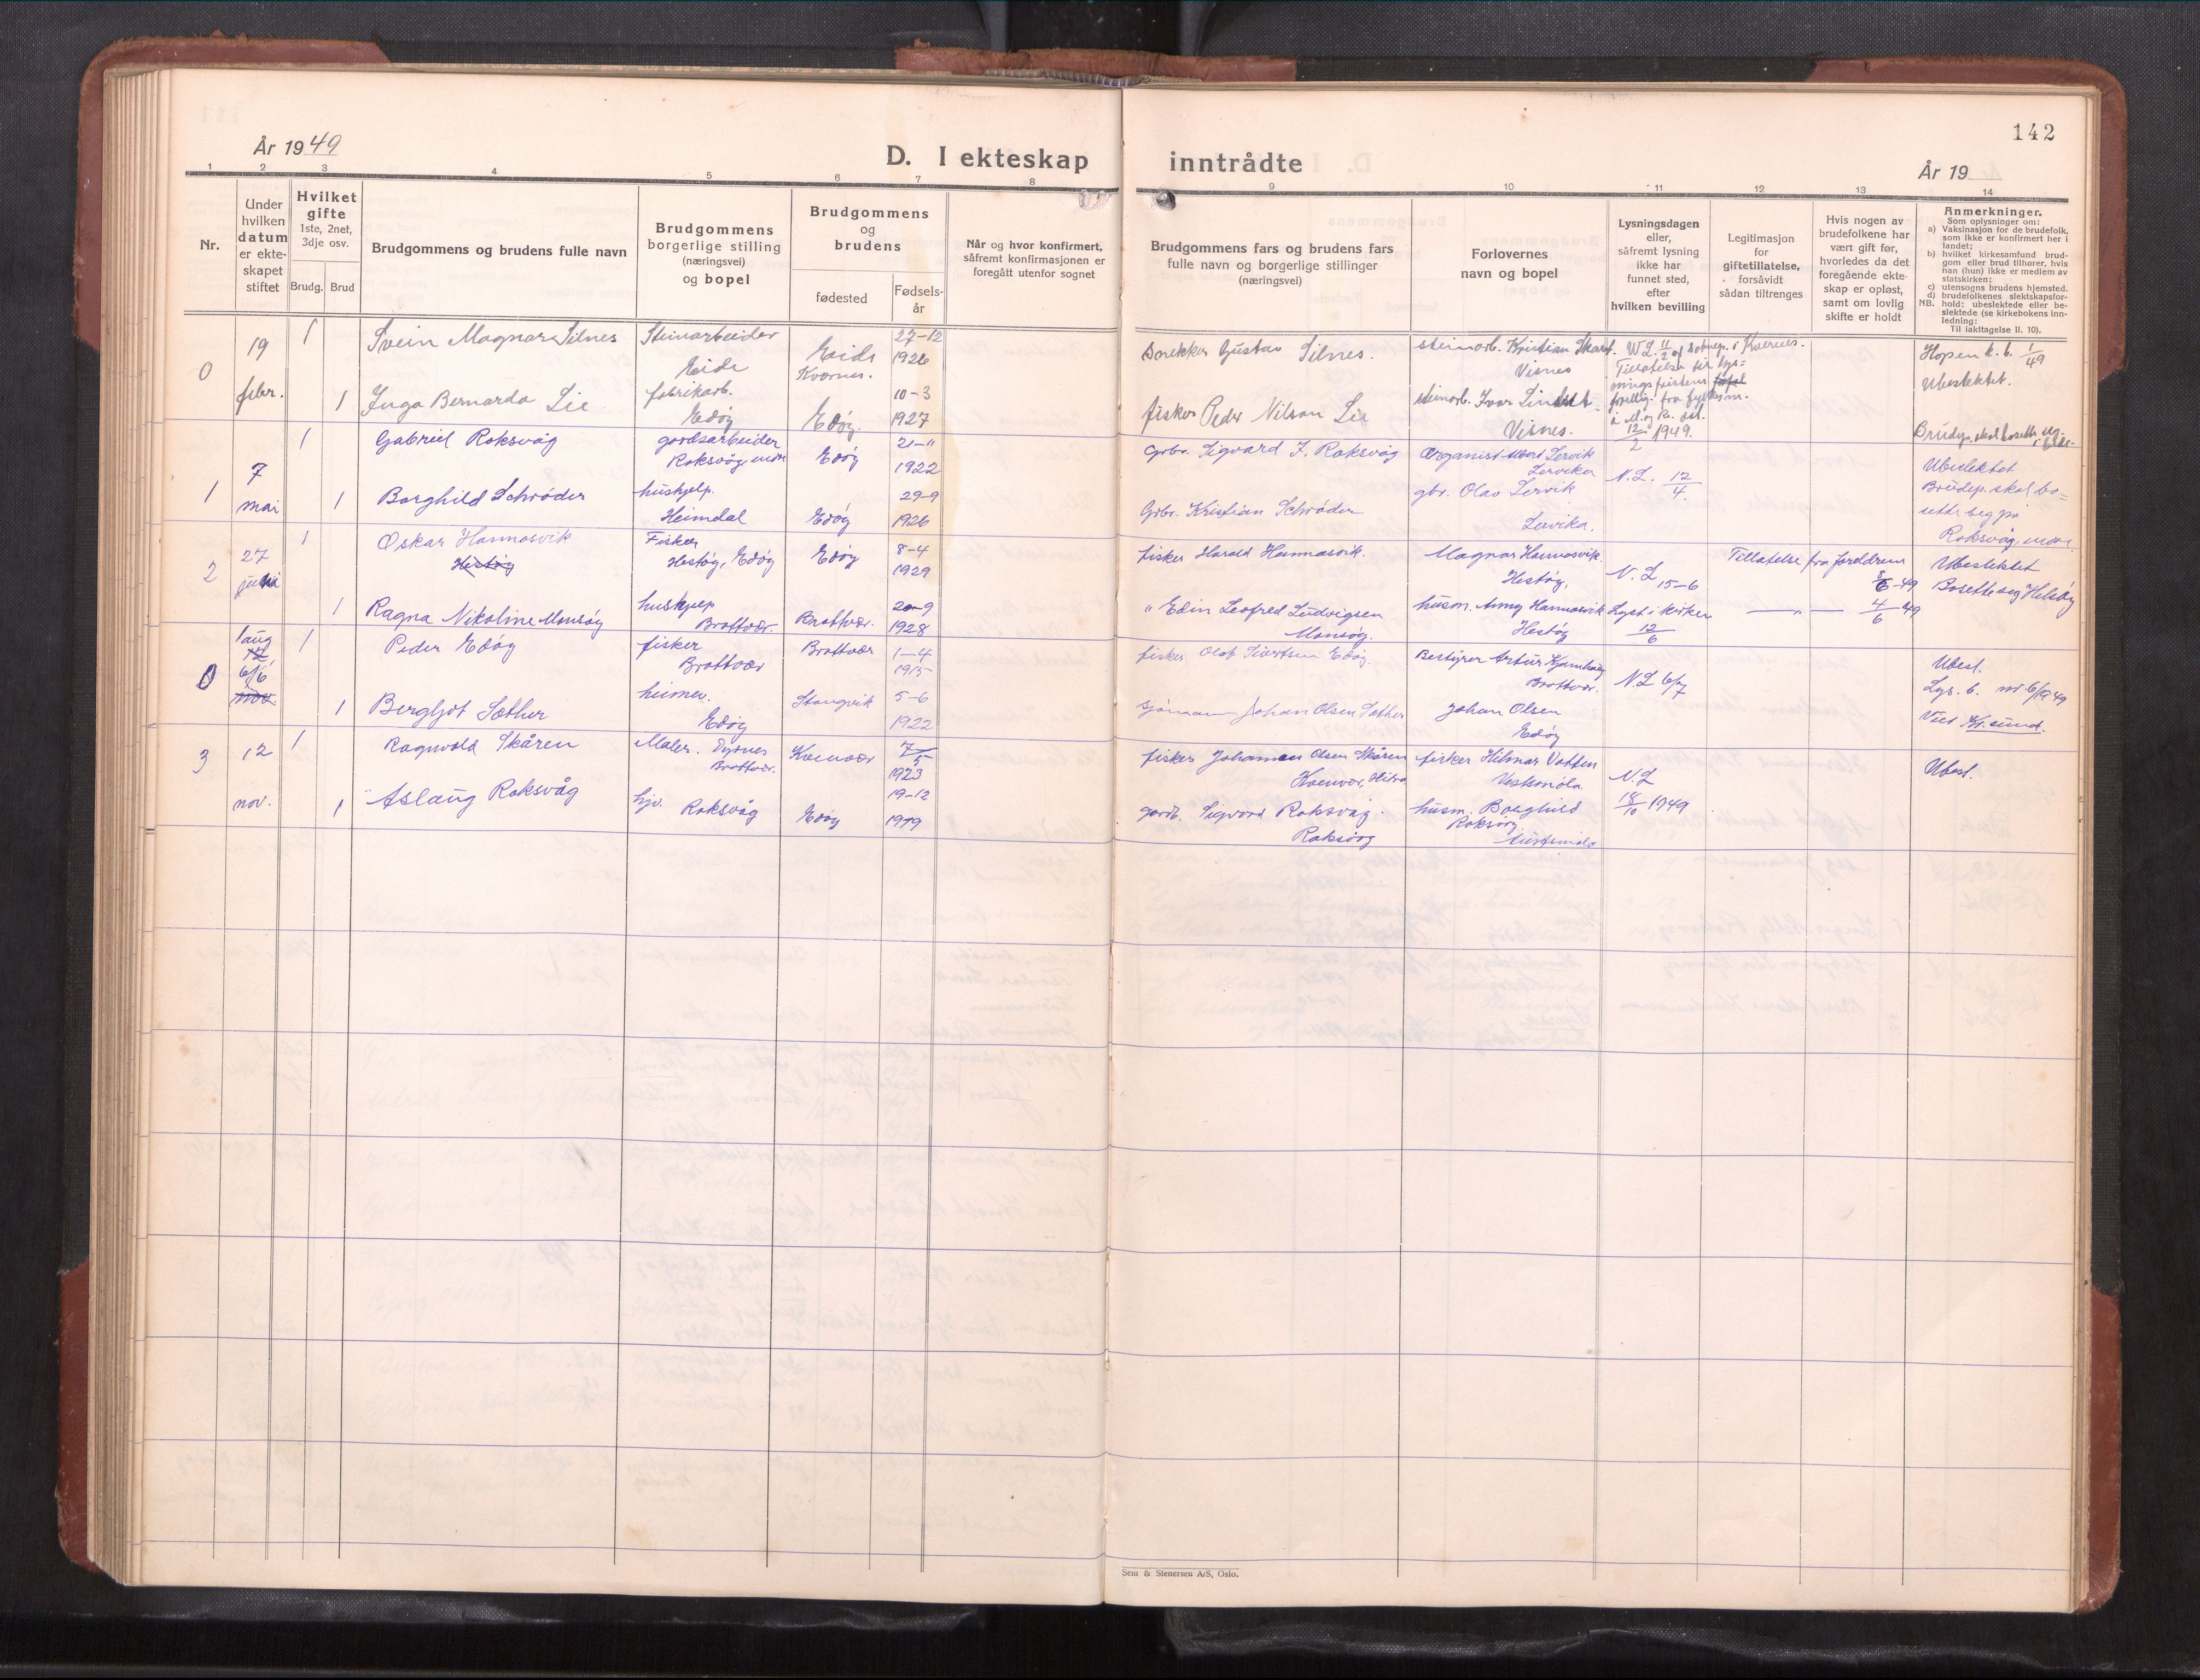 142
År 1949
D. I ekteskap inntrådte
År 19
1 2 3 4 5 6 7 8 9 10 11 12 13 14
Nr.
Under
hvilken
datum
er ekte-
skapet
stiftet
Hvilket
gifte
1ste, 2net,
3dje osv.
Brudg. Brud
Brudgommens og brudens fulle navn
Brudgommens
borgerlige stilling
(næringsvei)
og bopel
Brudgommens
og
brudens
fødested
Fødsels-
år
Når og hvor konfirmert,
såfremt konfirmasjonen er
foregått utenfor sognet
Brudgommens fars og brudens fars
fulle navn og borgerlige stillinger
(næringsvei)
Forlovernes
navn og bopel
Lysningsdagen
eller,
såfremt lysning
ikke har
funnet sted,
efter
hvilken bevilling
Legitimasjon
for
giftetillatelse,
forsåvidt
sådan tiltrenges
Hvis nogen av
brudefolkene har
vært gift før,
hvorledes da det
foregående ekte-
skap er opløst,
samt om lovlig
skifte er holdt
Anmerkninger.
Som oplysninger om:
a) Vaksinasjon for de brudefolk,
som ikke er konfirmert her i
landet;
b) hvilket kirkesamfund brud-
gom eller brud tilhører, hvis
han (hun) ikke er medlem av
statskirken;
c) utensogns brudens hjemsted.
d) brudefolkenes slektskapsfor-
NB. hold: ubeslektede eller be-
slektede (se kirkebokens inn-
ledning:
Til iakttagelse II. 10).
0
19
febr.
1
Svein Magnar Silnes
Steinarbeider
Eide
Eide
Kvernes.
27-12
1926
Gustav Silnes.
steinarb. Kristian
Visnes
Hopen k. b. 1/49
Ubeslektet.
1
Inga Bernarda Lie
fabrikarb.
Edøy
Edøy.
10-3
1927
fisker Peder Nilsen Lie
steinarb. Ivar
Visnes.
12/2 1949.
1
7
mai
1
Gabriel Roksvåg
gårdsarbeider
Roksvåg, indre
Edøy
21-11
1922
Grbr. Sigvard J. Roksvåg
Organist Lervik
Lervika
N.L. 12/4.
Ubeslektet
Brudep. skal bo=
sette seg på
Roksvåg, indre.
1
Borghild Schrøder
hushjelp.
Heimdal
Edøy
29-9
1926
Grbr. Kristian Schrøder
gbr. Olav Lervik
Lervika.
2
27
juni
1
Oskar Hannasvik
Hestøy
Fisker
Hestøy, Edøy
Edøy
8-4
1929
fisker Harald Hannasvik.
Magnar Hannasvik
Hestøy,
N.L 15-6
Tillatelse fra foreldrene
Ubeslektet
1
Ragna Nikoline Monsøy
hushjelp
Brattvær.
Brattvær.
20-9
1928
" Edin Leofred Ludvigsen
Monsøy.
husm. Anny Hannasvik
Hestøy
Lyst i kirken
12/6
— " — 4/6 49
0
1 aug
1
Peder Edøy
fisker
Brattvær
Brattvær
1-4
1915
fisker Olaf Sivertsen Edøy.
Bestyrer Artur
Brattvær.
N.L 6/7
Ubesl.
Lys. b. nr. 6/1949
Viet Kr.sund.
1
Bergljot Sæther
heimev.
Edøy
Stangvik
5-6
1922
Sjømann Johan Olsen Sæther
Johan Olsen
Edøy
3
12
nov.
1
Ragnvald Skåren
Maler. Dyrnes
Brattvær.
Kvenvær
7/5
1923
fisker Johannes Olsen Skåren
Kvenvær, Hitra
fisker Hilmar Vatten
Vestsmøla
N.L
18/10 1949
Ubesl.
1
Aslaug Roksvåg
hjv. Roksvåg
Edøy
19-12
1919
gårdb. Sigvard Roksvåg.
Roksvåg
husm. Borghild
Roksvåg
Sem & Stenersen A/S, Oslo.